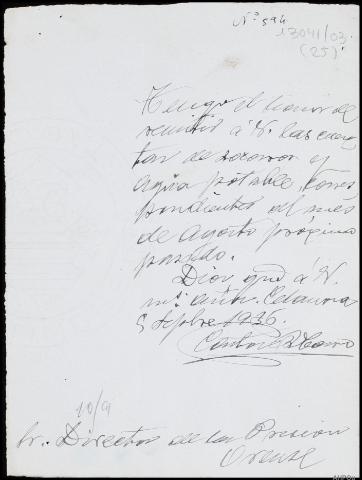 Nº 594
13041/03
(25)
Tengo el honor de
remitir á V. las cuen
tas de socorros y
agua potable, corres
pondientes al mes
de agosto próximo
pasado.
Dios gue á V.
ms. añs. Celanova
5 Stpbre 1936.
10/9
Sr. Director de la Prision
Orense